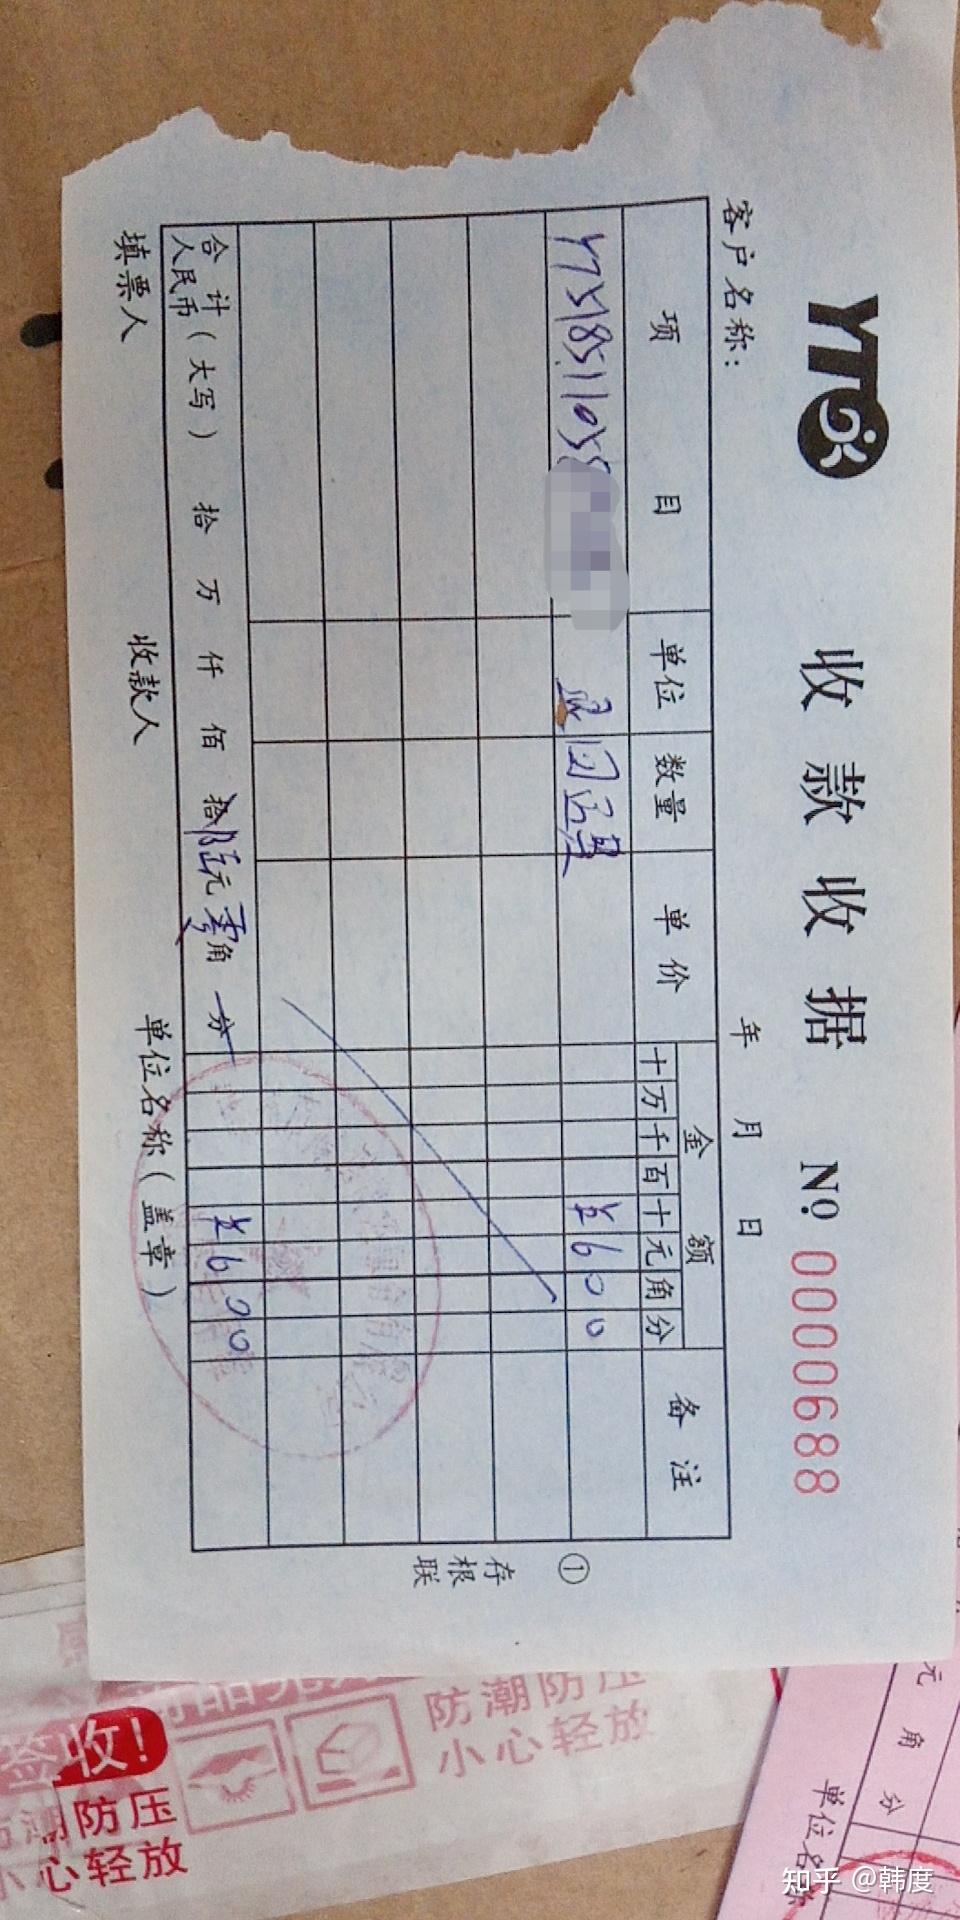 YTO
收款收据 № 0000688
客户名称： 年 月 日
项目 单位 数量 单价 金额 备注
十 万 千 百 十 元 角 分
¥ 6 0 0
合计
人民币（大写） 拾 万 仟 佰 拾 陆元 零角 分
¥ 6 0 0
填票人 收款人 单位名称（盖章）
① 存根联
防潮防压
小心轻放
收!
防压
小心轻放
元 角 分
单位名称
知乎 @韩度